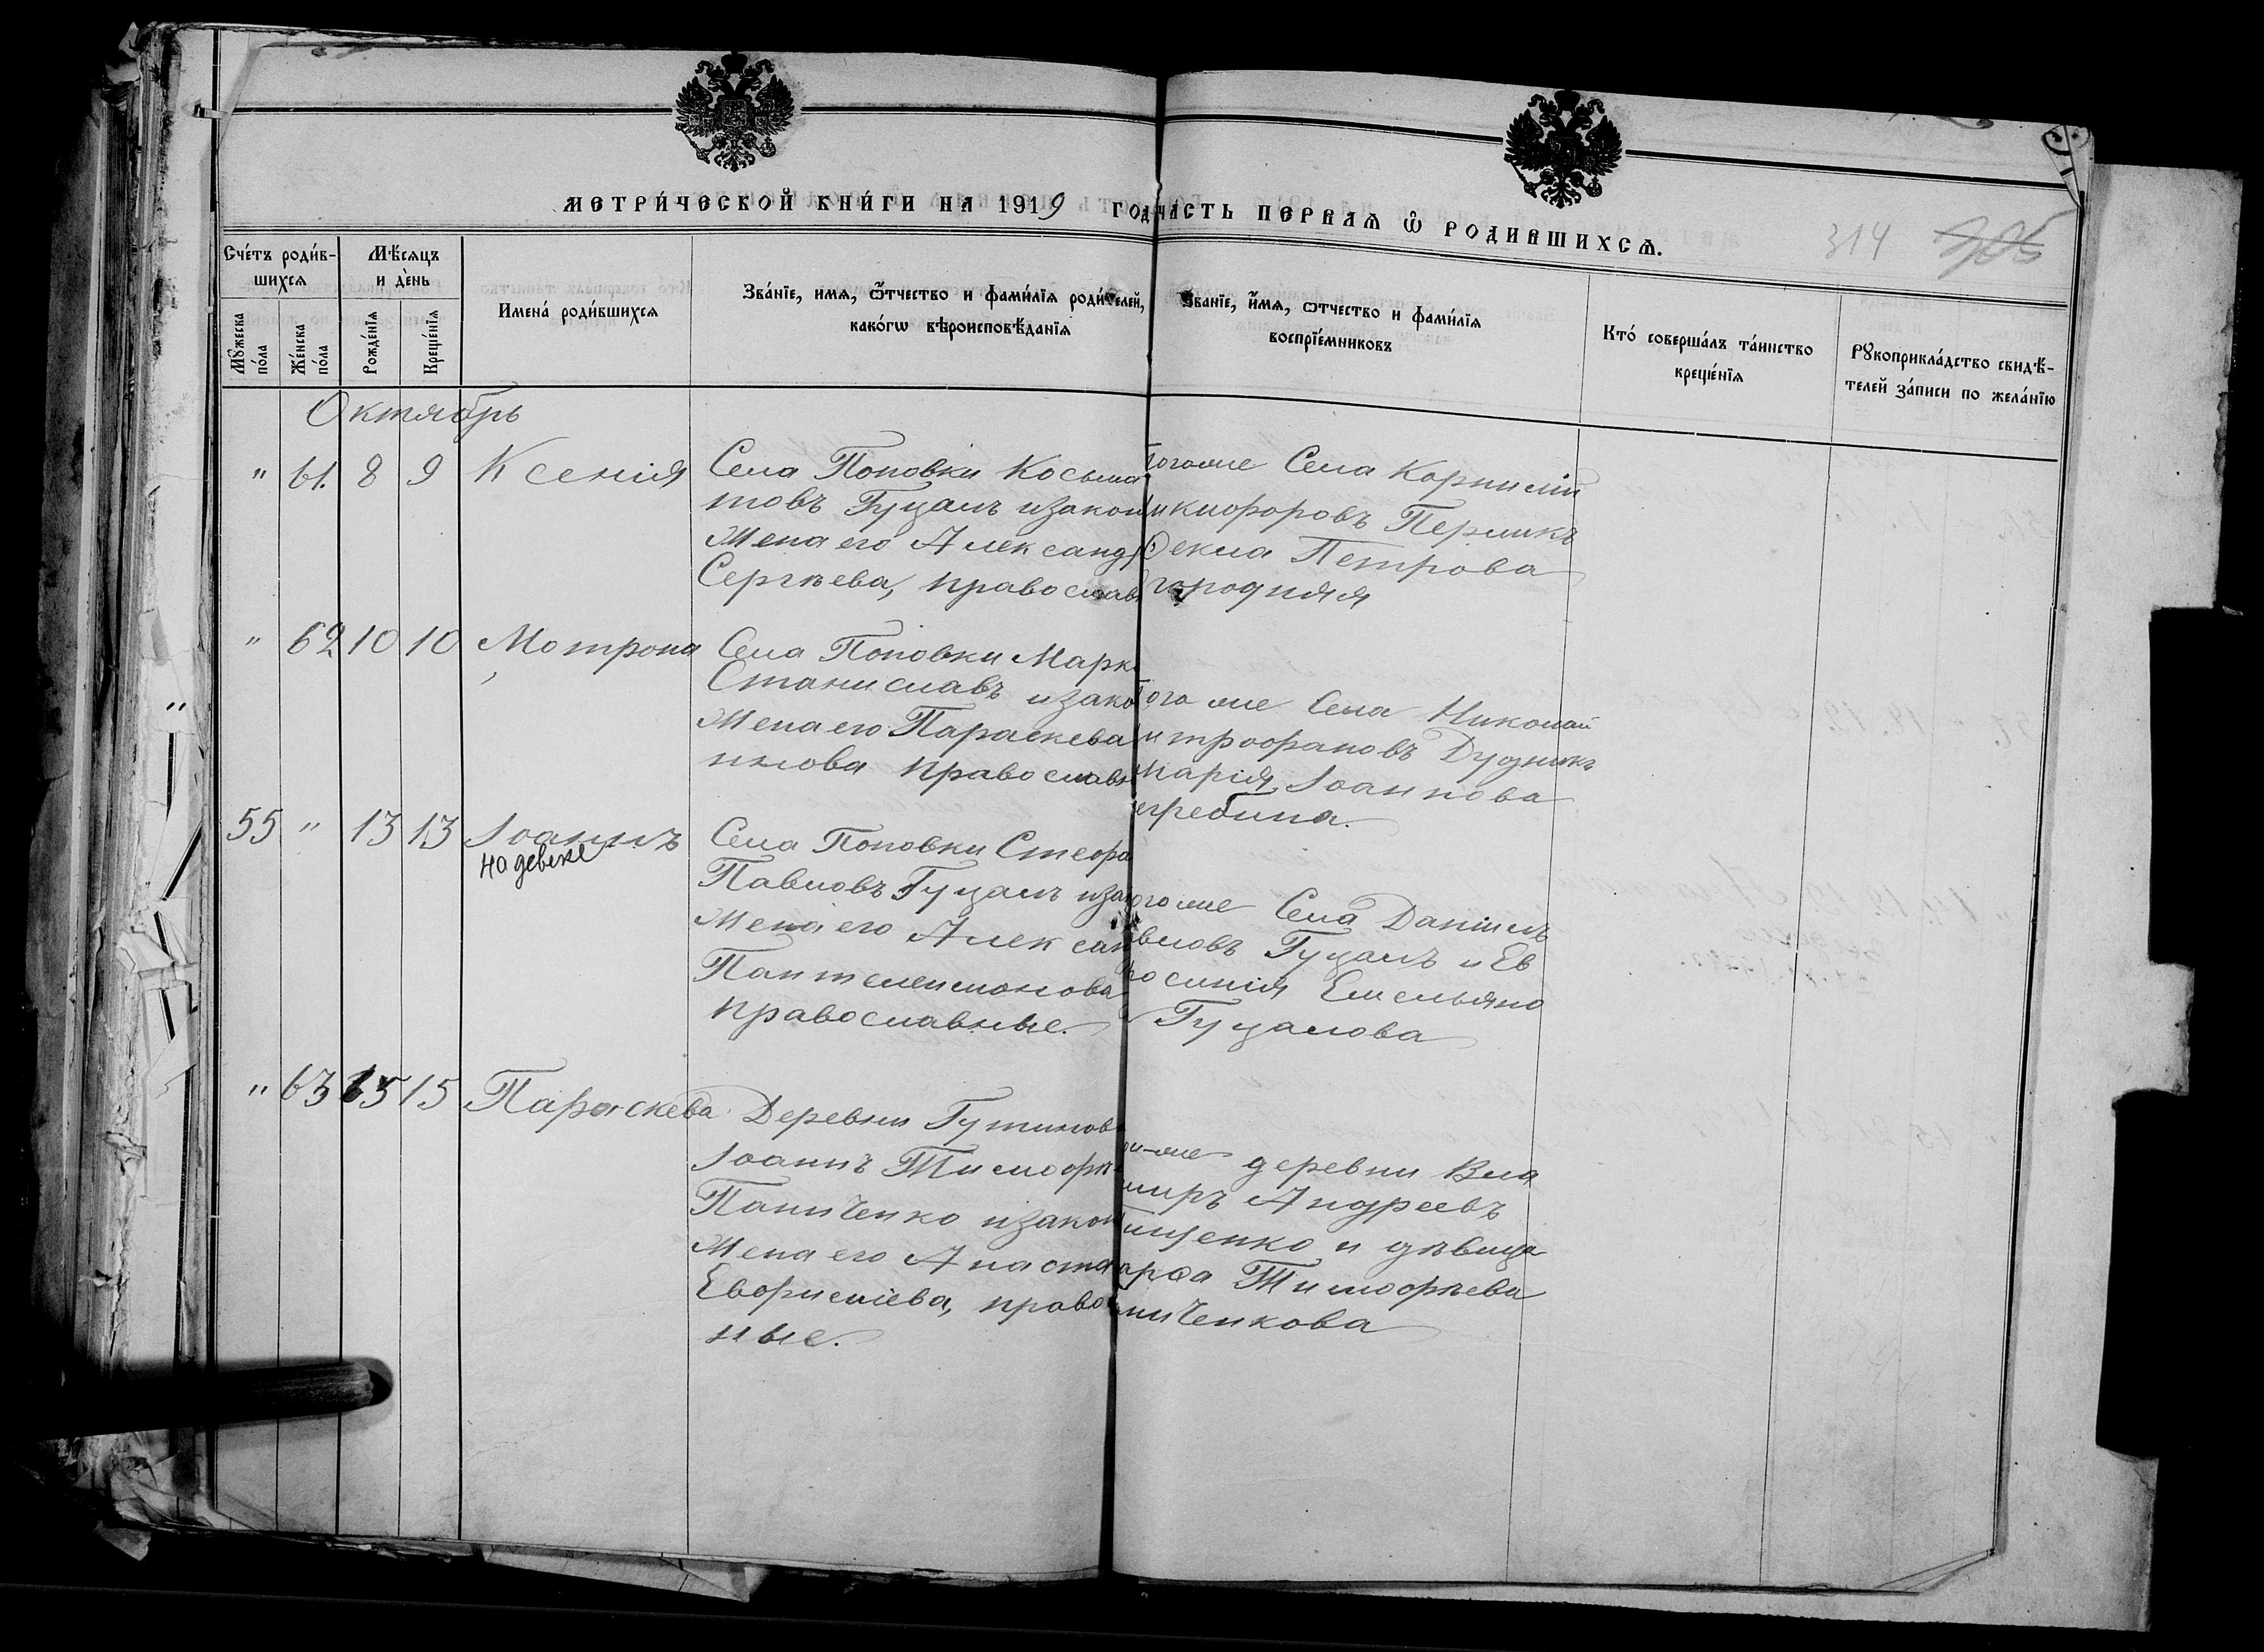 МЕТРИ́ЧЕСКОЙ КНИ́ГИ НА 1919 ГОДЪ ЧАСТЬ ПЕРВАЯ Ѿ РОДИВШИХСЯ.
314
Сче́тъ роди́в-
шихся
Мꙋ́жеска по́ла
Же́нска по́ла
Мѣ́сяцъ
и де́нь
Рожде́нїя
Креще́нїя
Имена́ роди́вшихся
Зва́нїе, имя, ѻ҆́тчество и фами́лїя роди́телей,
како́гѡ вѣроисповѣ́данїя
Зва́нїе, и҆́мя, ѻтчество и фами́лїя
воспрїе́мниковъ
Кто́ соверша́лъ та́инство
креще́нїя
Рꙋкоприкла́дство свидѣ́-
телей за́писи по жела́нїю
Октябрь
" 61. 8 9 Ксенія
Села Поповки Косьма
товъ Гуцалъ и закон
жена его Александр
Сергѣева, православ
тогоже Села Корнилій
икифоровъ Перликъ
Ѳекла Петрова
городняя
" 62 10 10 Мотрона
Села Поповки Марк
Станиславъ и зако
жена его Параскева
нлова православн
того же Села Николай
итрофановъ Дудникъ
Марія Іоаннова
егребина.
55 " 13 13 Іоаннъ
на девеке
Села Поповки Стефа
Павловъ Гуцалъ и за
жена его Алексан
Пантелеимонова
православные.
ого же Села Даніилъ
вловъ Гуцалъ и Ев
росинія Емельяно
Гуцалова
" 63 15 15 Параскева
Деревни Гутинов
Іоаннъ Тимофѣ
Паниченко и закон
жена его Анаста
Евфиміева, право
ные.
ой-же деревни Вла
миръ Андреевъ
ищенко и дѣвица
арѳа Тимофѣева
ниченкова